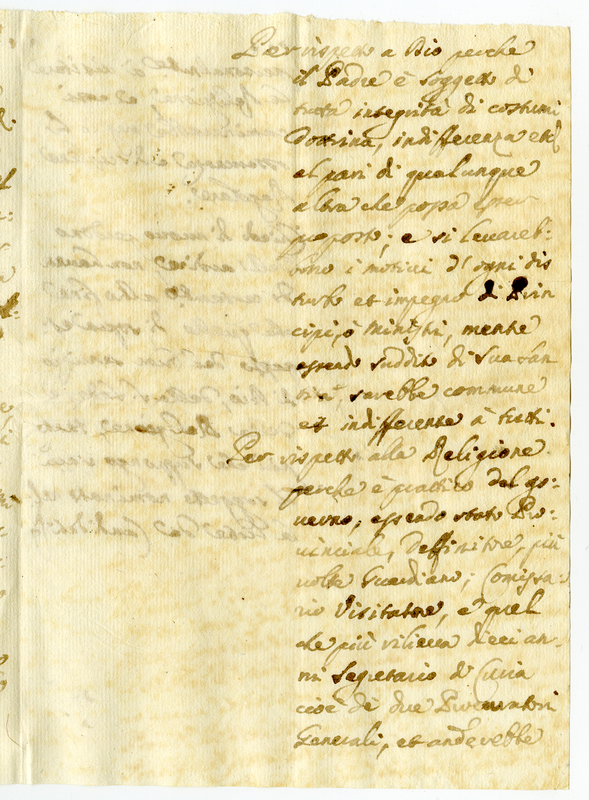 Per rispetto a Dio perche
il Padre è soggetto di
tutta integrità di costumi
Dottrina, indifferenza etc
al pari di qualunque
altro che possa esser
proposto; e si leuareb:
bono i motiui d'ogni dis
turbo et impegno di Prin
cipi, ò Ministri, mentre
essendo suddito di Sua San
tità, sarebbe commune
et indifferente à tutti.
Per rispetto alla Religione
perche è prattico del go:
uerno, essendo stato Pro:
uinciale, Deffinitore, più
uolte Guardiano; Comissa:
rio Visitatore, e quel
che più rilieua dieci an:
ni Segretario di Curia
cioè di due Procuratori
Generali, et anderebbe